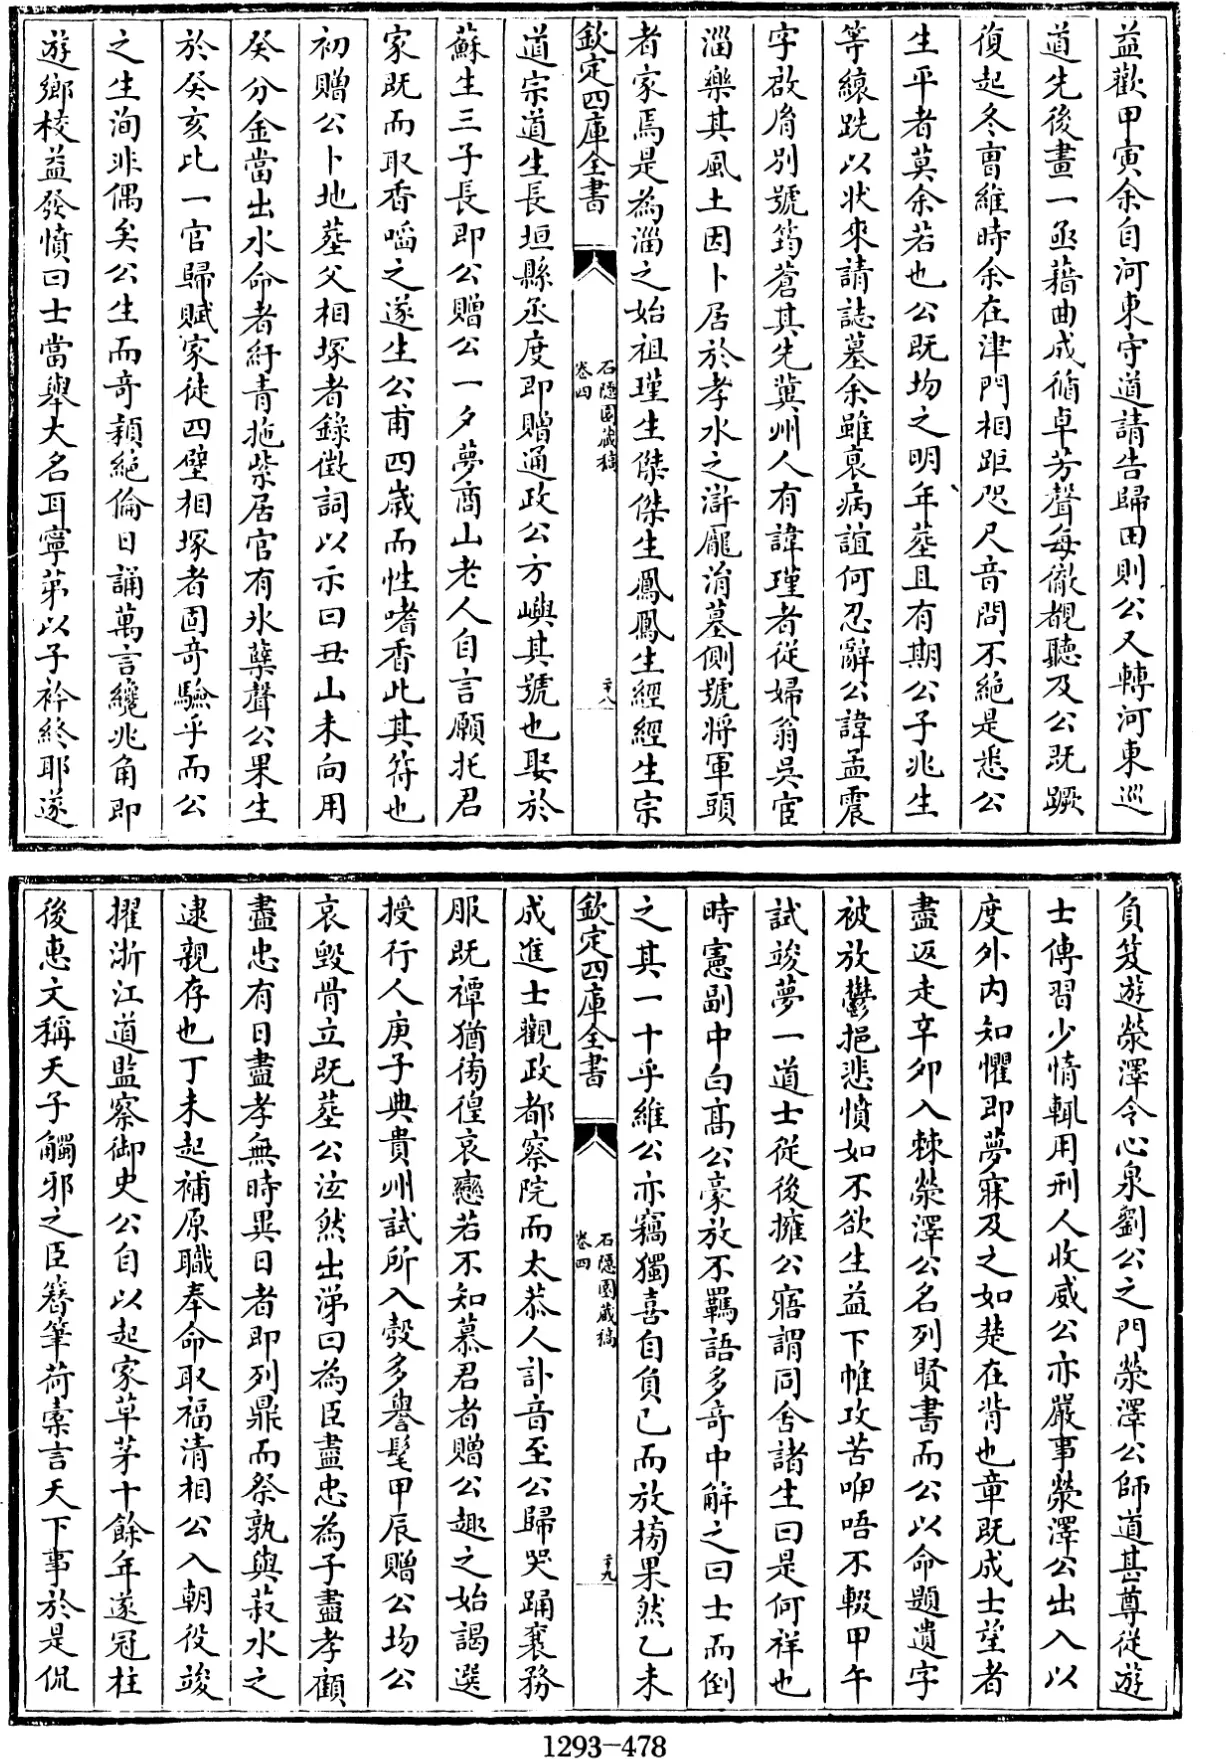 益歡甲寅余自河東守道請告歸田則公又轉河東巡
道先後畫一丞藉曲成循卓芳聲每徹覩聽及公既蹶
復起冬曹維時余在津門相距咫尺音問不絶是悉公
生平者莫余若也公既均之明年塟且有期公子兆生
等縗跣以狀來請誌墓余雖衰病誼何忍辭公諱孟震
字啟脣別號筠蒼其先冀州人有諱瑾者從婦翁吳宦
淄樂其風土因卜居於孝水之滸龎涓墓側號將軍頭
者家焉是為淄之始祖瑾生傑傑生鳳鳳生經經生宗
欽定四庫全書
石隱園藏稿
卷四
二十八
道宗道生長垣縣丞度即贈通政公方嶼其號也娶於
蘇生三子長即公贈公一夕夢商山老人自言願托君
家既而取香㗖之遂生公甫四嵗而性嗜香此其符也
初贈公卜地塟父相塚者錄徵詞以示曰丑山未向用
癸分金當出水命者紆青拖紫居官有氷蘖聲公果生
於癸亥比一官歸賦家徒四壁相塚者固奇驗乎而公
之生洵非偶矣公生而奇穎絶倫日誦萬言纔兆角即
遊鄉校益發憤曰士當舉大名耳寧第以子衿終耶遂
負笈遊滎澤令心泉劉公之門滎澤公師道甚尊從遊
士傳習少惰輒用刑人收威公亦嚴事滎澤公出入以
度外内知懼即夢寐及之如楚在背也章既成士望者
盡返走辛卯入棘滎澤公名列賢書而公以命題遺字
被放鬱挹悲憤如不欲生益下帷攻苦咿唔不輟甲午
試竣夢一道士從後擁公寤謂同舍諸生曰是何祥也
時憲副中白髙公豪放不羈語多奇中解之曰士而倒
之其一十乎維公亦竊獨喜自負已而放榜果然乙未
欽定四庫全書
石隱園藏稿
卷四
二十九
成進士觀政都察院而太恭人訃音至公歸哭踊襄務
服既禫猶徬徨哀戀若不知慕君者贈公趣之始謁選
授行人庚子典貴州試所入彀多譽髦甲辰贈公均公
哀毀骨立既塟公泫然出涕曰為臣盡忠為子盡孝顧
盡忠有日盡孝無時異日者即列鼎而祭孰與菽水之
逮親存也丁未起補原職奉命取福清相公入朝役竣
擢浙江道監察御史公自以起家草茅十餘年遂冠柱
後惠文稱天子觸邪之臣簪筆荷橐言天下事於是侃
1293-478